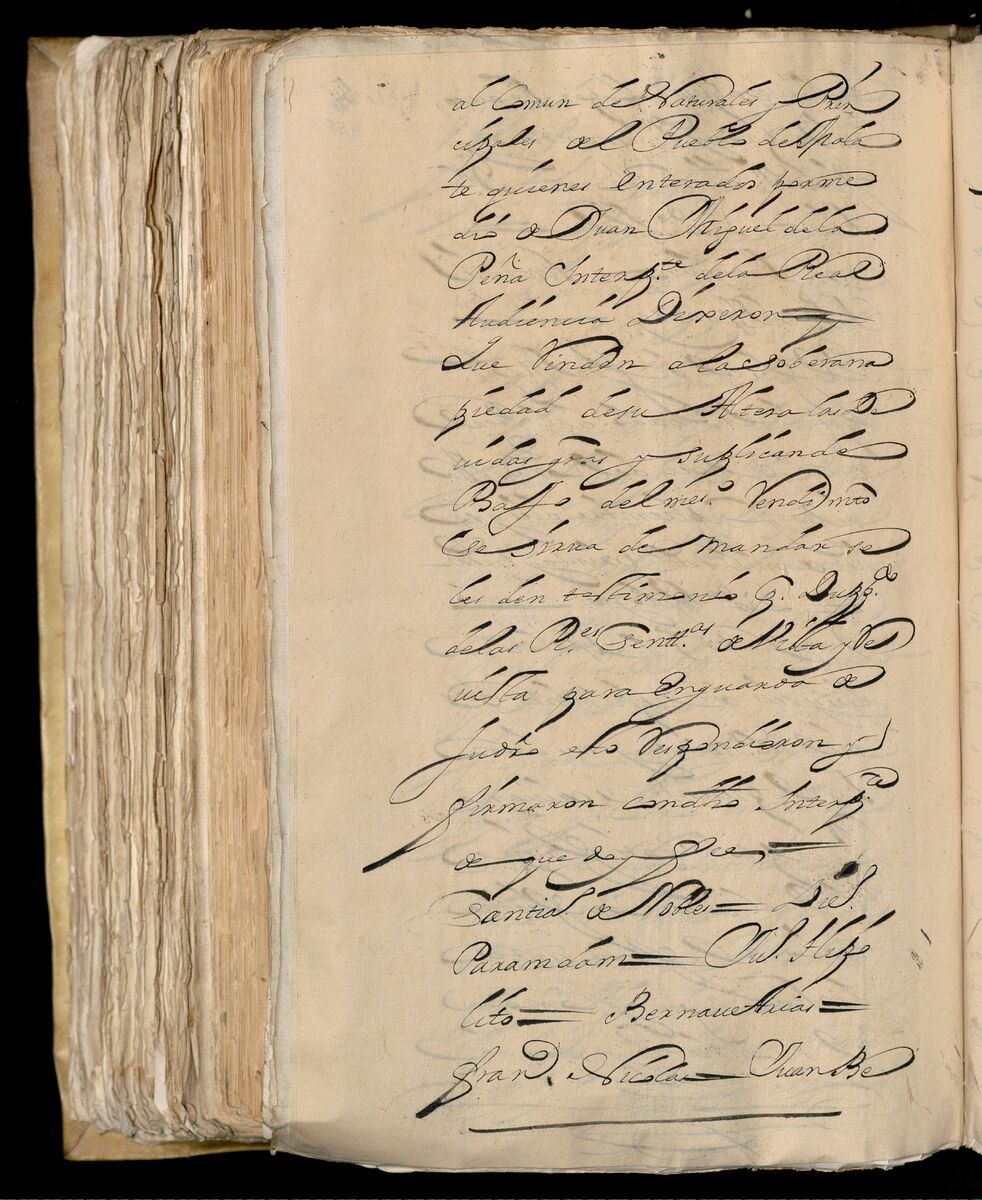 al Comun de Naturales y Prin
cipales del Pueblo de Ypala
te quienes enterados por me
dio de Juan Miguel de la
Peña Interp.te dela Real
Audiencia Dixeron
Que Rinden a la soberana
piedad de su Alteza las De
vidas grãs y suplican de
Baxo del mes.o Rendimto
se sirva de mandar se
les den testimonio p.r Dupp.do
de las R.es Sentt.as de Vista y Re
vista para En guarda de
su dro esto Respondieron y
firmaron con dho Interp.te
de que doy fee,
Santia.l de Robles = Diel.
Paramdam = Jul. Hipo
lito = Bernave Arias =
fran.co Nicolas = Juan Be